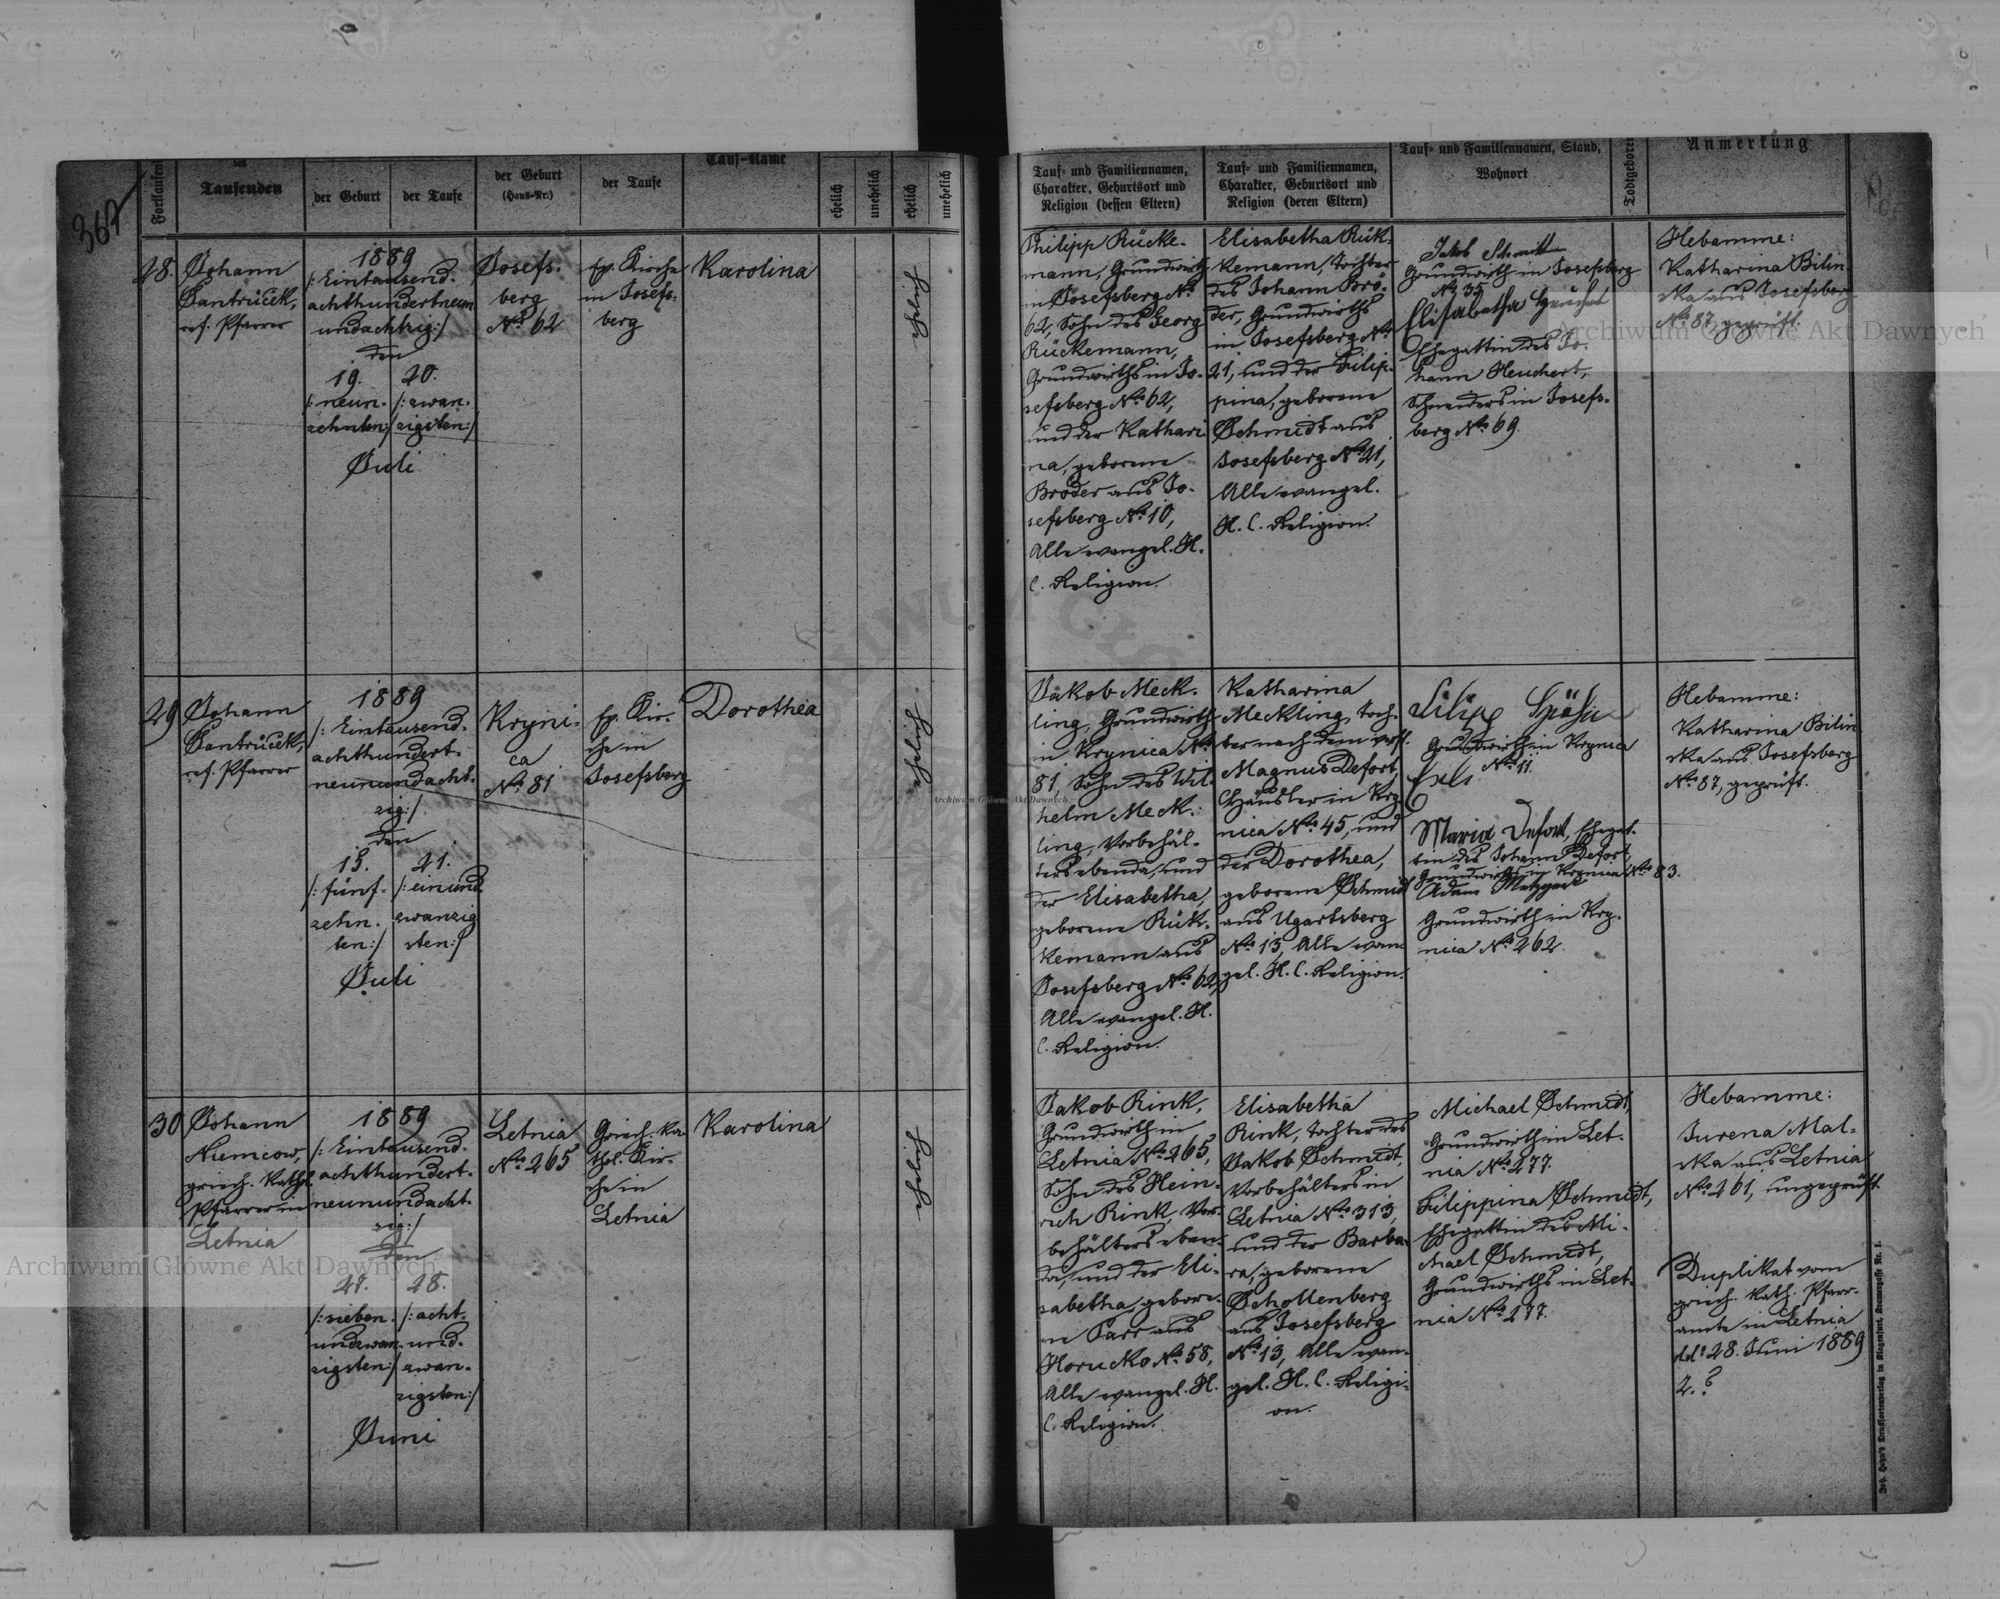 367
Fortlaufende
des
Taufenden
der Geburt
der Taufe
der Geburt
(Haus-Nr.)
der Taufe
Tauf-Name
ehelich
unehelich
ehelich
unehelich
Tauf- und Familiennamen,
Charakter, Geburtsort und
Religion (dessen Eltern)
Tauf- und Familiennamen,
Charakter, Geburtsort und
Religion (deren Eltern)
Tauf- und Familiennamen, Stand,
Wohnort
Todtgeboren
Anmerkung
28.
Johann
Jantrücek,
ref. Pfarrer
1889
/: Eintausend-
achthundertneun
undachtzig :/
den
19.
/: neun-
zehnten :/
20.
/: zwan-
zigsten :/
Juli
Josefs-
berg
No 62
Ev. Kirche
in Josefs-
berg
Karolina
eheliche
Philipp Rücke-
mann, Grundwirth
in Josefsberg No
62, Sohn des Georg
Rückemann,
Grundwirths in Jo-
sefsberg No 62,
und der Kathari
na, geborene
Bröder aus Jo-
sefsberg No 10,
Alle evangel. H.
C. Religion.
Elisabetha Rük-
kemann, Tochter
des Johann Brö-
der, Grundwirths
in Josefsberg No
21, und der Filip-
pina, geborene
Schmidt aus
Josefsberg No 21,
Alle evangel.
H. C. Religion.
Jakob Schmitt
Grundwirth in Josefsberg
No 35
Elisabetha Heuchert
Ehegattin des Jo-
hann Heuchert,
Schneiders in Josefs-
berg No 69.
Hebamme:
Katharina Bilin
ska aus Josefsberg
No 87, geprüft.
29
Johann
Jantrücek,
ref. Pfarrer
1889
/: Eintausend-
achthundert-
neunundacht-
zig :/
den
15.
/: fünf-
zehn-
ten :/
21.
/: einund
zwanzig
sten :/
Juli
Kryni-
ca
No 81
Ev. Kir-
che in
Josefsberg
Dorothea
eheliche
Jakob Meck-
ling, Grundwirth
in Krynica No
81, Sohn des Wil-
helm Meck-
ling, Vorbehäl-
ters ebenda, und
der Elisabetha,
geborene Rük-
kemann aus
Josefsberg No 62,
Alle evangel. H.
C. Religion.
Katharina
Meckling, Toch-
ter nach dem verst.
Magnus Defort,
Häusler in Kry
nica No 45, und
der Dorothea,
geborene Schmidt
aus Ugartsberg
No 15, Alle evan
gel. H. C. Religion.
Filipp Späth
Grundwirth in Krynica
No 11.
Maria Defort, Ehegat-
tin des Johann Defort,
Grundwirths in Krynica No 83.
Adam Metzger
Grundwirth in Kry-
nica No 262.
Hebamme:
Katharina Bilin
ska aus Josefsberg
No 87, geprüft.
30
Johann
Niemcow,
griech. Kathl.
Pfarrer in
Letnia
1889
/: Eintausend-
achthundert-
neunundacht-
zig :/
den
27.
/: sieben-
undzwan-
zigsten :/
28.
/: acht-
und-
zwan-
zigsten :/
Juni
Letnia
No 265
Griech. Ka
thl. Kir-
che in
Letnia
Karolina
eheliche
Jakob Rink,
Grundwirth in
Letnia No 265,
Sohn des Hein-
rich Rink, Vor-
behälters eben-
da, und der Eli-
sabetha, gebore-
ne Parr aus
Horucko No 58,
Alle evangel. H.
C. Religion.
Elisabetha
Rink, Tochter des
Jakob Schmidt,
Vorbehälters in
Letnia No 313,
und der Barba-
ra, geborene
Schollenberg
aus Josefsberg
No 13, Alle evan-
gel. H. C. Religi-
on.
Michael Schmidt,
Grundwirth in Let-
nia No 277.
Filippina Schmidt,
Ehegattin des Mi-
chael Schmidt,
Grundwirths in Let-
nia No 277.
Hebamme:
Jurena Mal-
ska aus Letnia
No 261, ungeprüft
Duplikat vom
griech. kath. Pfarr-
amte in Letnia
dd° 28. Juni 1889
Z. ?
Joh. Heyn's Drucksortenverlag in Klagenfurt, Kramergasse Nr. 1.
Archiwum Główne Akt Dawnych
Archiwum Główne Akt Dawnych
Archiwum Główne Akt Dawnych